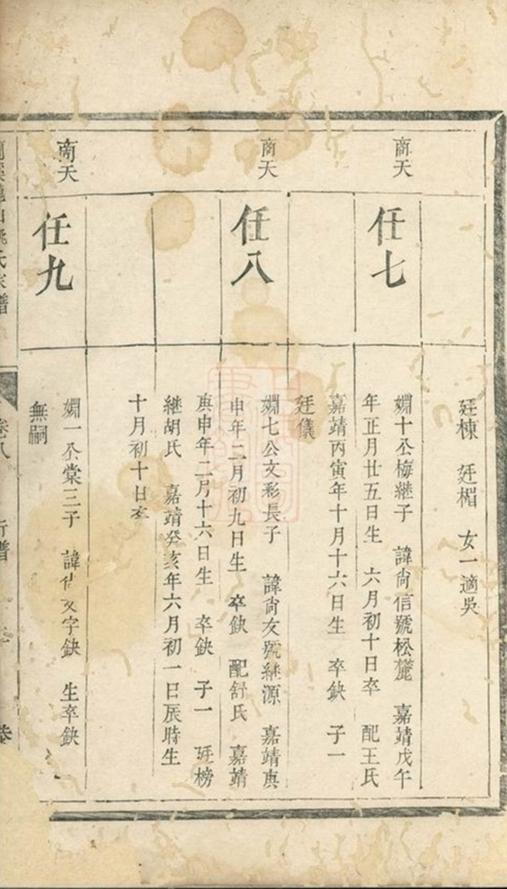 廷棟 廷楣 女一適吳
商天
任七
嫻十公梅継子 諱尙信號松麓 嘉靖戊午
年正月廿五日生 六月初十日卒 配王氏
嘉靖丙寅年十月十六日生 卒缺 子一
廷儀
商天
任八
嫻七公文彩長子 諱尙友號継源 嘉靖庚
申年二月初九日生 卒缺 配舒氏 嘉靖
庚申年二月十六日生 卒缺 子一 廷榜
継胡氏 嘉靖癸亥年六月初一日辰時生
十月初十日卒
商天
任九
嫻一公棠三子 諱 文字缺 生卒缺
無嗣
氏宗譜 卷八 行譜